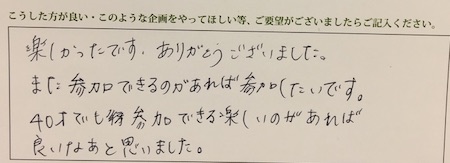 こうした方が良い・このような企画をやってほしい等、ご要望がございましたらご記入ください。
楽しかったです。ありがとうございました。
また参加できるのがあれば参加したいです。
40才でも参加できる楽しいのがあれば
良いなあと思いました。